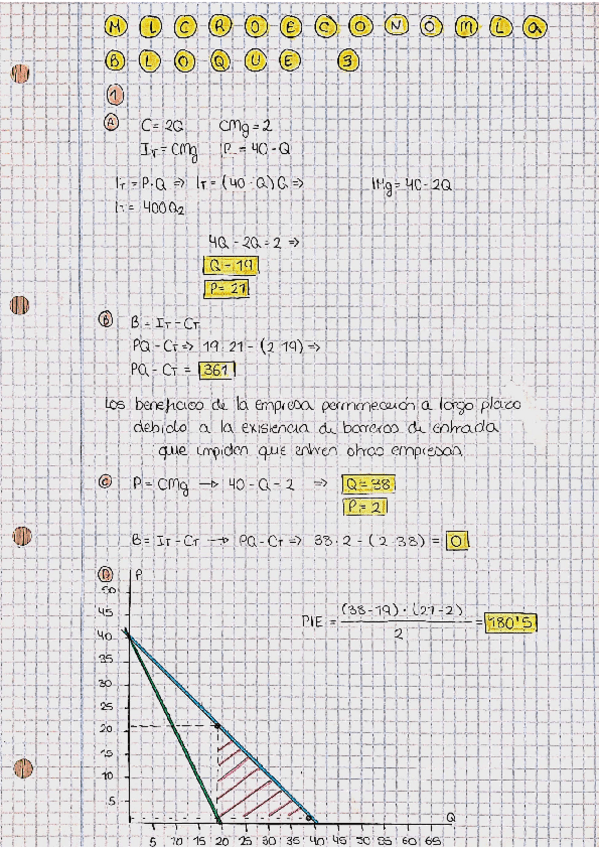 MICROECONÓMIA
BLOQUE 3
1
A C = 2Q CMg = 2
IT = CMg P = 40 - Q
IT = P·Q => IT = (40 - Q)Q => IMg = 40 - 2Q
IT = 40Q Q2
4Q - 2Q = 2 =>
Q - 19
P = 21
B B = IT - CT
PQ - CT => 19·21 - (2·19) =>
PQ - CT = 361
Los beneficios de la empresa permanecerán a largo plazo
debido a la existencia de barreras de entrada
que impiden que entren otras empresas
C P = CMg → 40 - Q - 2 => Q = 38
P = 2
B = IT - CT → PQ - CT => 38·2 - (2·38) = 0
D P
PIE = (38-19)·(21-2) / 2 = 180'5
50
45
40
35
30
25
20
15
10
5
Q
5 10 15 20 25 30 35 40 45 50 55 60 65